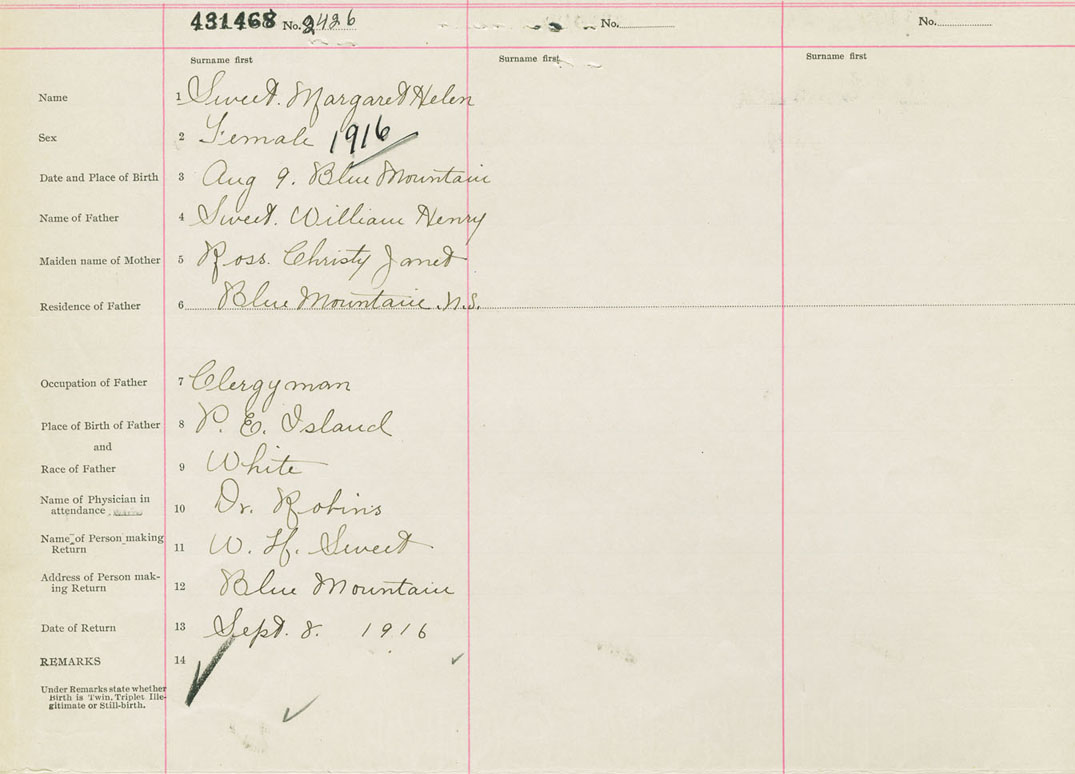 431468 No. 2426 No. No.
Surname first Surname first Surname first
Name 1 Sweet. Margaret Helen
Sex 2 Female 1916
Date and Place of Birth 3 Aug 9. Blue Mountain
Name of Father 4 Sweet. William Henry
Maiden name of Mother 5 Ross. Christy Janet
Residence of Father 6 Blue Mountain N.S.
Occupation of Father 7 Clergyman
Place of Birth of Father 8 P. E. Island
and
Race of Father 9 White
Name of Physician in
attendance 10 Dr. Robins
Name of Person making
Return 11 W. H. Sweet
Address of Person mak-
ing Return 12 Blue Mountain
Date of Return 13 Sept. 8. 1916
REMARKS 14
Under Remarks state whether
Birth is Twin, Triplet Ille-
gitimate or Still-birth.